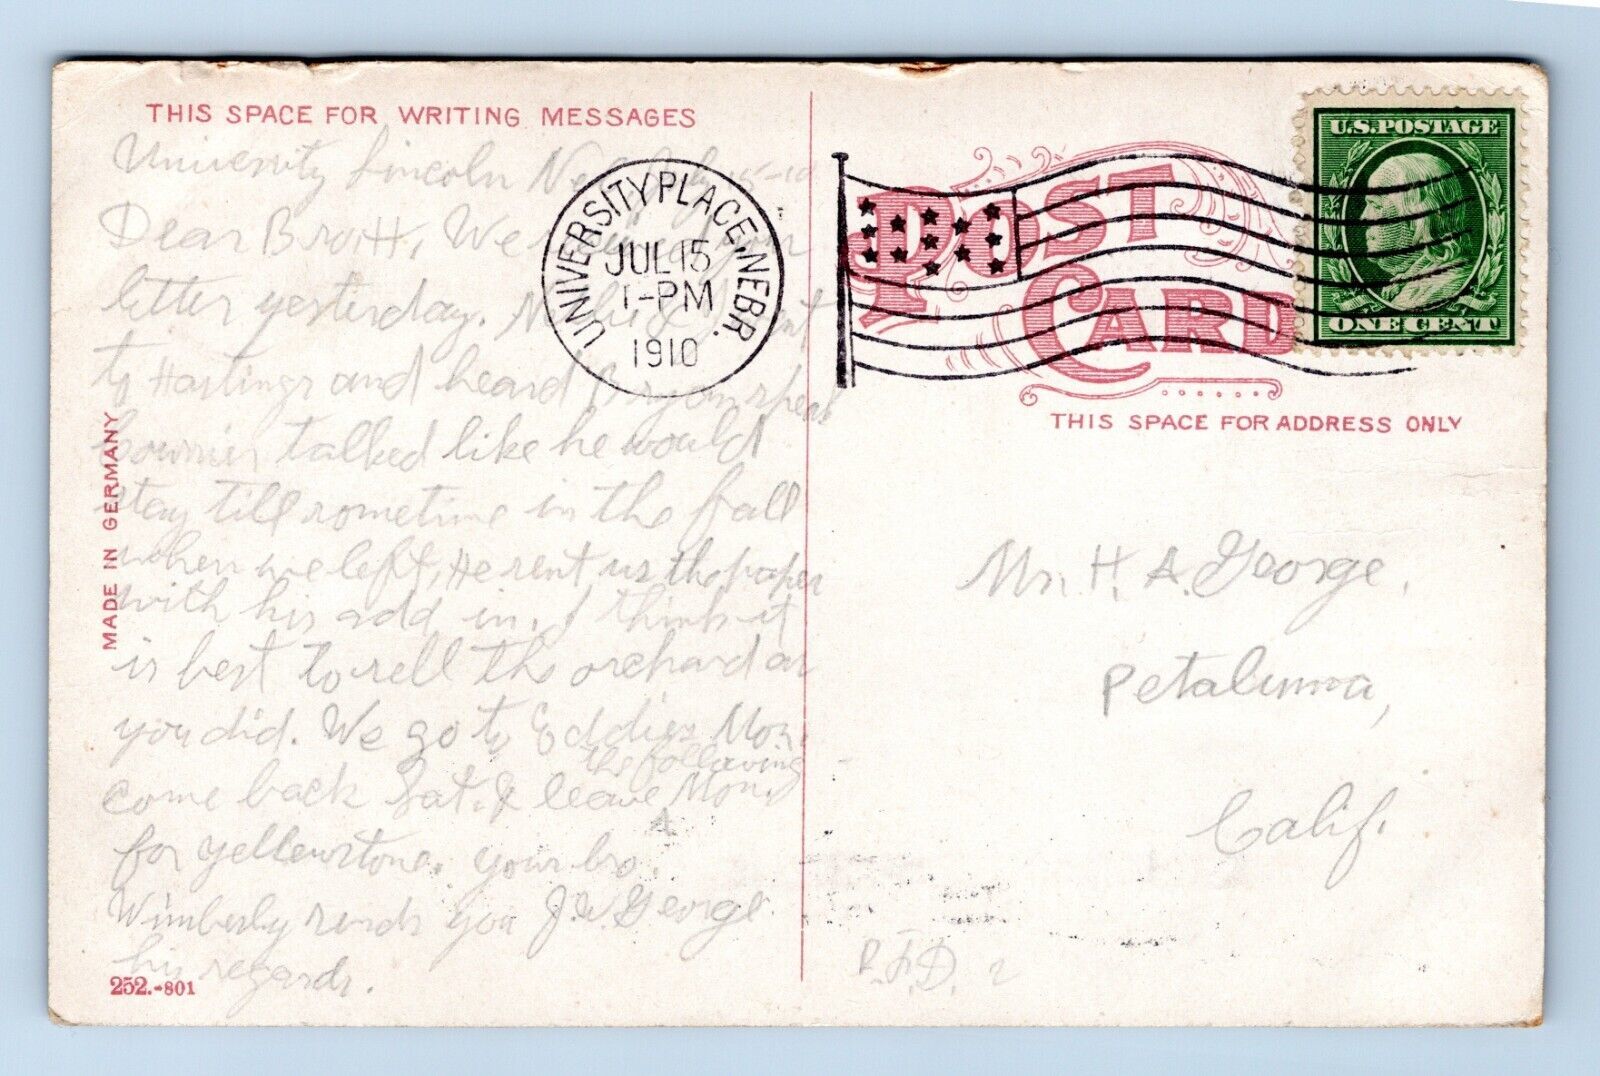 THIS SPACE FOR WRITING MESSAGES
University Lincoln Neb July 15-10
Dear Brott, We
letter yesterday.
to Hastings and heard Bryan speak
talked like he would
stay till sometime in the fall
when we left, He sent us the paper
with his add in. I think it
is best to sell the orchard as
you did. We go to Eddies Mon.
come back Sat. & leave the following Mon.
for yellowstone. your bro.
Wimberly sends you J. W. George.
his regards.
MADE IN GERMANY
252.-801
UNIVERSITY PLACE, NEBR.
JUL 15
1-PM
1910
POST CARD
U.S. POSTAGE
ONE CENT
THIS SPACE FOR ADDRESS ONLY
Mr. H. A. George,
Petaluma,
Calif.
R.F.D. 2